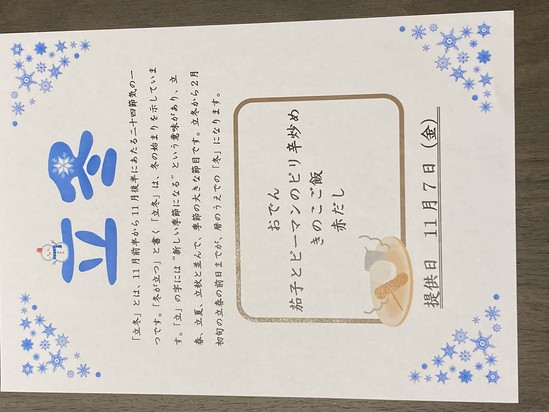 立冬
「立冬」とは、11月前半から11月後半にあたる二十四節気の一
つです。「冬が立つ」と書く「立冬」は、冬の始まりを示していま
す。「立」の字には“新しい季節になる”という意味があり、立
春、立夏、立秋と並んで、季節の大きな節目です。立冬から2月
初旬の立春の前日までが、暦のうえでの「冬」になります。
おでん
茄子とピーマンのピリ辛炒め
きのこご飯
赤だし
提供日 11月7日（金）